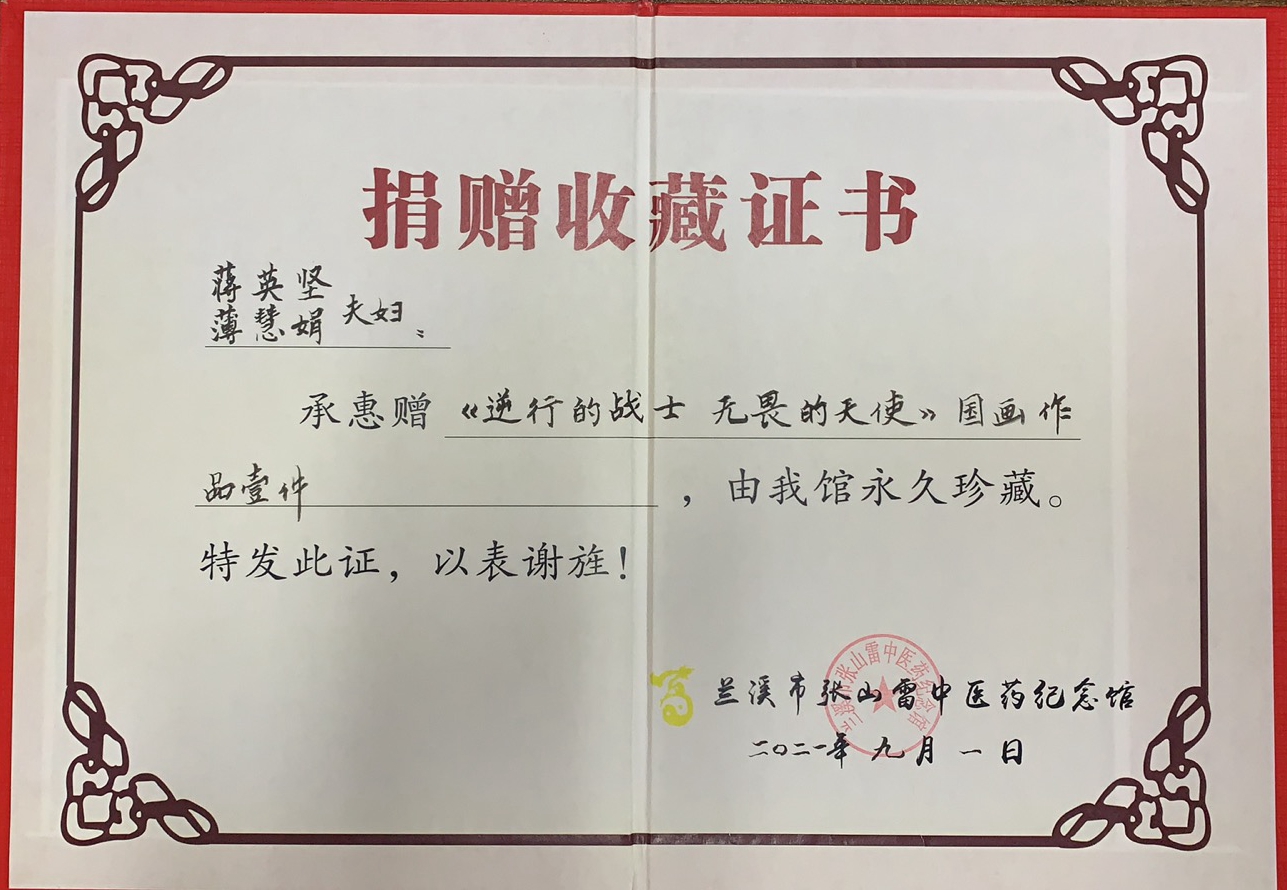 捐赠收藏证书
蒋英坚
薄慧娟 夫妇：
承惠赠《逆行的战士 无畏的天使》国画作
品壹件，由我馆永久珍藏。
特发此证，以表谢旌！
兰溪市张山雷中医药纪念馆
二〇二一年九月一日
兰溪市张山雷中医药纪念馆